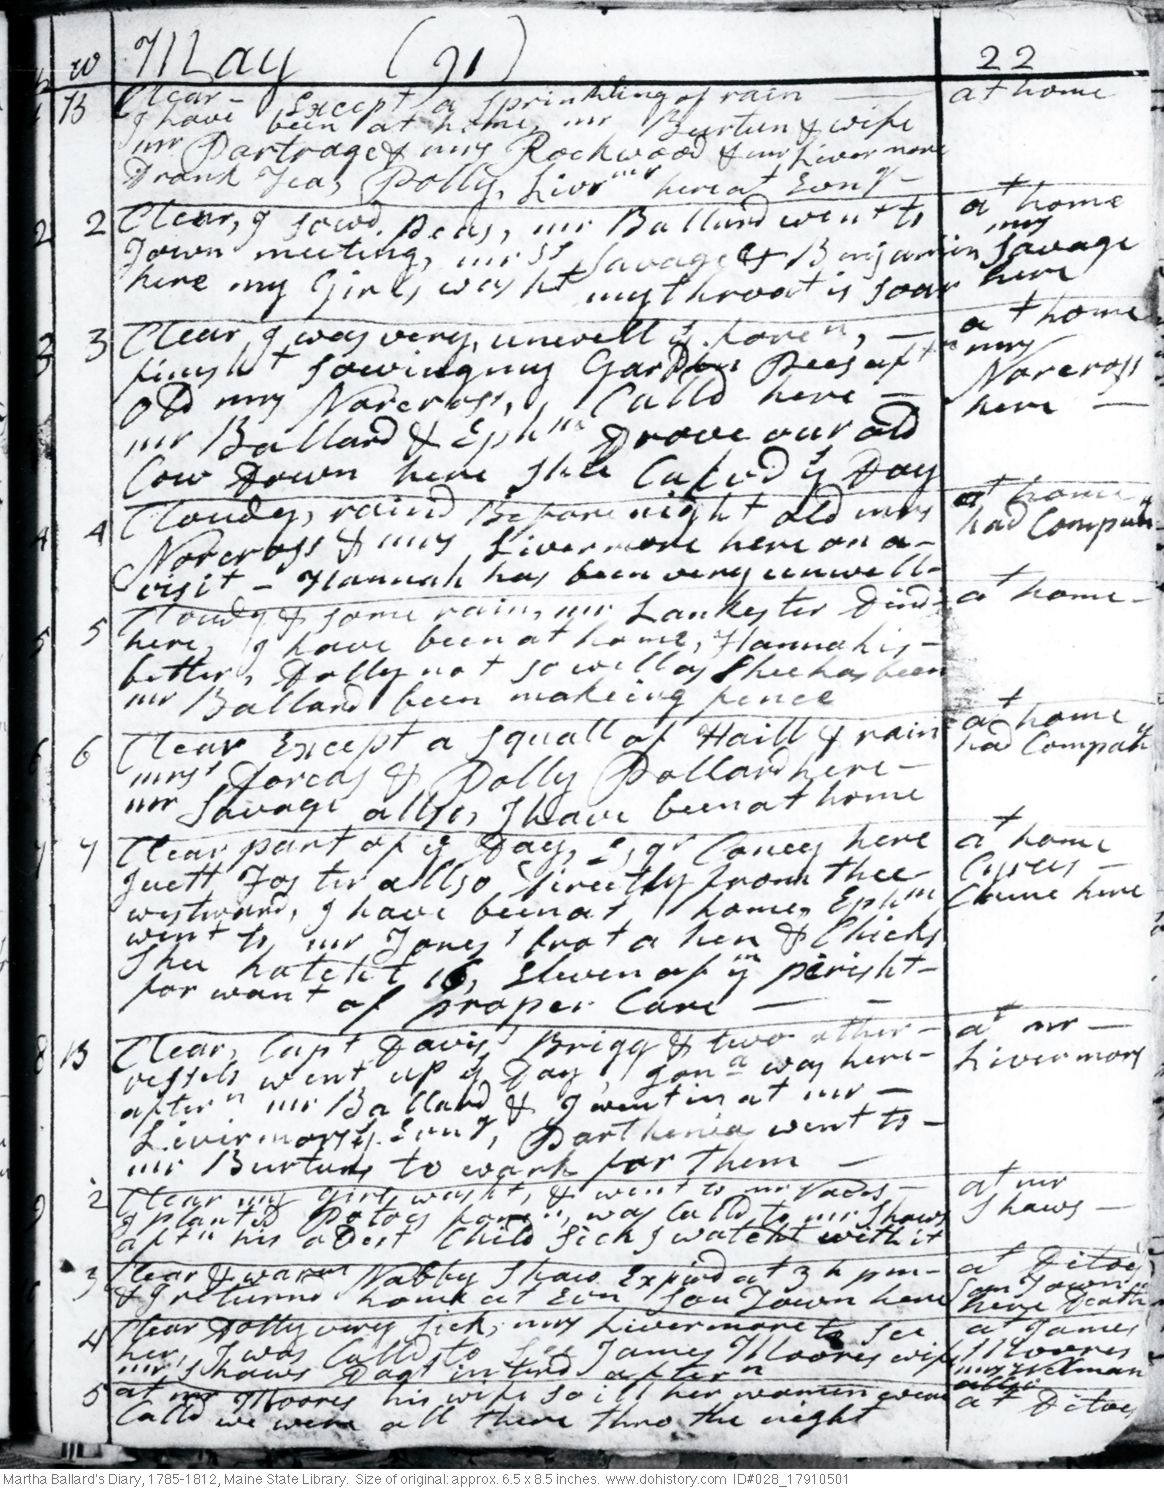 w May (91) 22
1 B Clear - Except a sprinkling of rain — at home
I have been at home, mr Burtun & wife
mr Partrage & mrs Rockwood & mr Livermore
Drank Tea, Polly Livrmr here at Evng -
2 2 Clear, I sowd Peas, mr Ballard went to at home
Town meeting, mrss Savage & Benjamin mrs Savage
here my Girls washt my throat is soar here
3 3 Clear, I was very unwell ye foren, — at home
finisht sowing my Garden Pees aftn mrs
old mrs Norcross, Calld here — Norcross
mr Ballard & Ephm Drove our old here —
Cow Down here Shee Calvd ys Day
4 4 Cloudy, raind Before night old mrs at home
Norcross & mrs Livermore here on a - had Compan
visit - Hannah has been very unwell -
5 5 Cloudy & some rain, mr Lankester Dind at home -
here, I have been at home, Hannah is -
better, Dolly not so well as Shee has been
mr Ballard been makeing fence
6 6 Clear Except a squall of Haill & rain at home
mrss Dorcas & Polly Pollard here - had Compan
mr Savage allso, I have been at home
7 7 Clear part of ye Day, Esqr Coney here at home
Juett Foster allso Directly from thee
westward, I have been at home, Ephm Came here
went to mr Jones' brot a hen & Chicks
Shee hatcht 16, Eleven of ym perisht -
for want of proper Care — -
8 B Clear, Capt Davis' Brigg & two other - at mr -
vessels went up ys Day, Jona was here - Livermors
aftern mr Ballard & I went in at mr -
Livermors ye Evng, Parthenia went to -
mr Burtuns to work for them —
9 2 Clear my girls washt, & went to mr at mr
I planted Potoes foren, was Calld to mr Shaws Shaws -
aftn his oldest Child sick I watcht with it
3 Clear & warm Nabby Shaw Expird at 3 h pm - at Ditoes
& I returnd home at Evn son Town here son Town
here Death
4 Clear Dolly very sick, mrs Livermore to see at James
her, I was Calld to see James Moores wife Moores
mr Shaws Dagt intérd aftern
allso
5 at mr Moores his wife so ill her women were at Ditoes
Calld we were all there thro the night
Martha Ballard's Diary, 1785-1812, Maine State Library. Size of original: approx. 6.5 x 8.5 inches. www.dohistory.com ID#028_17910501